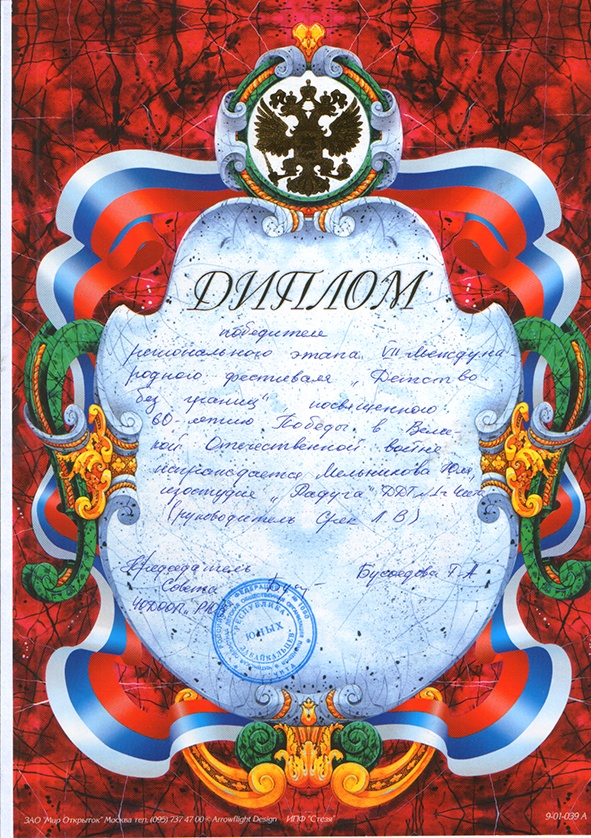 ДИПЛОМ
победителя
регионального этапа VII Междуна-
родного фестиваля "Детство
без границ" посвященного
60-летию Победы в Вели-
кой Отечественной войне
награждается Мельникова Юля,
изостудия "Радуга" ДДТ №1
(руководитель Л.В)
Председатель
Совета
ЮНЫХ
ЗАБАЙКАЛЬЦЕВ
РЕСПУБЛИКА
ЧИТА
ЗАО "Мир Открыток" Москва тел. (095) 737 47 00 © Arrowflight Design ИПФ "Стезя"
9-01-039 А